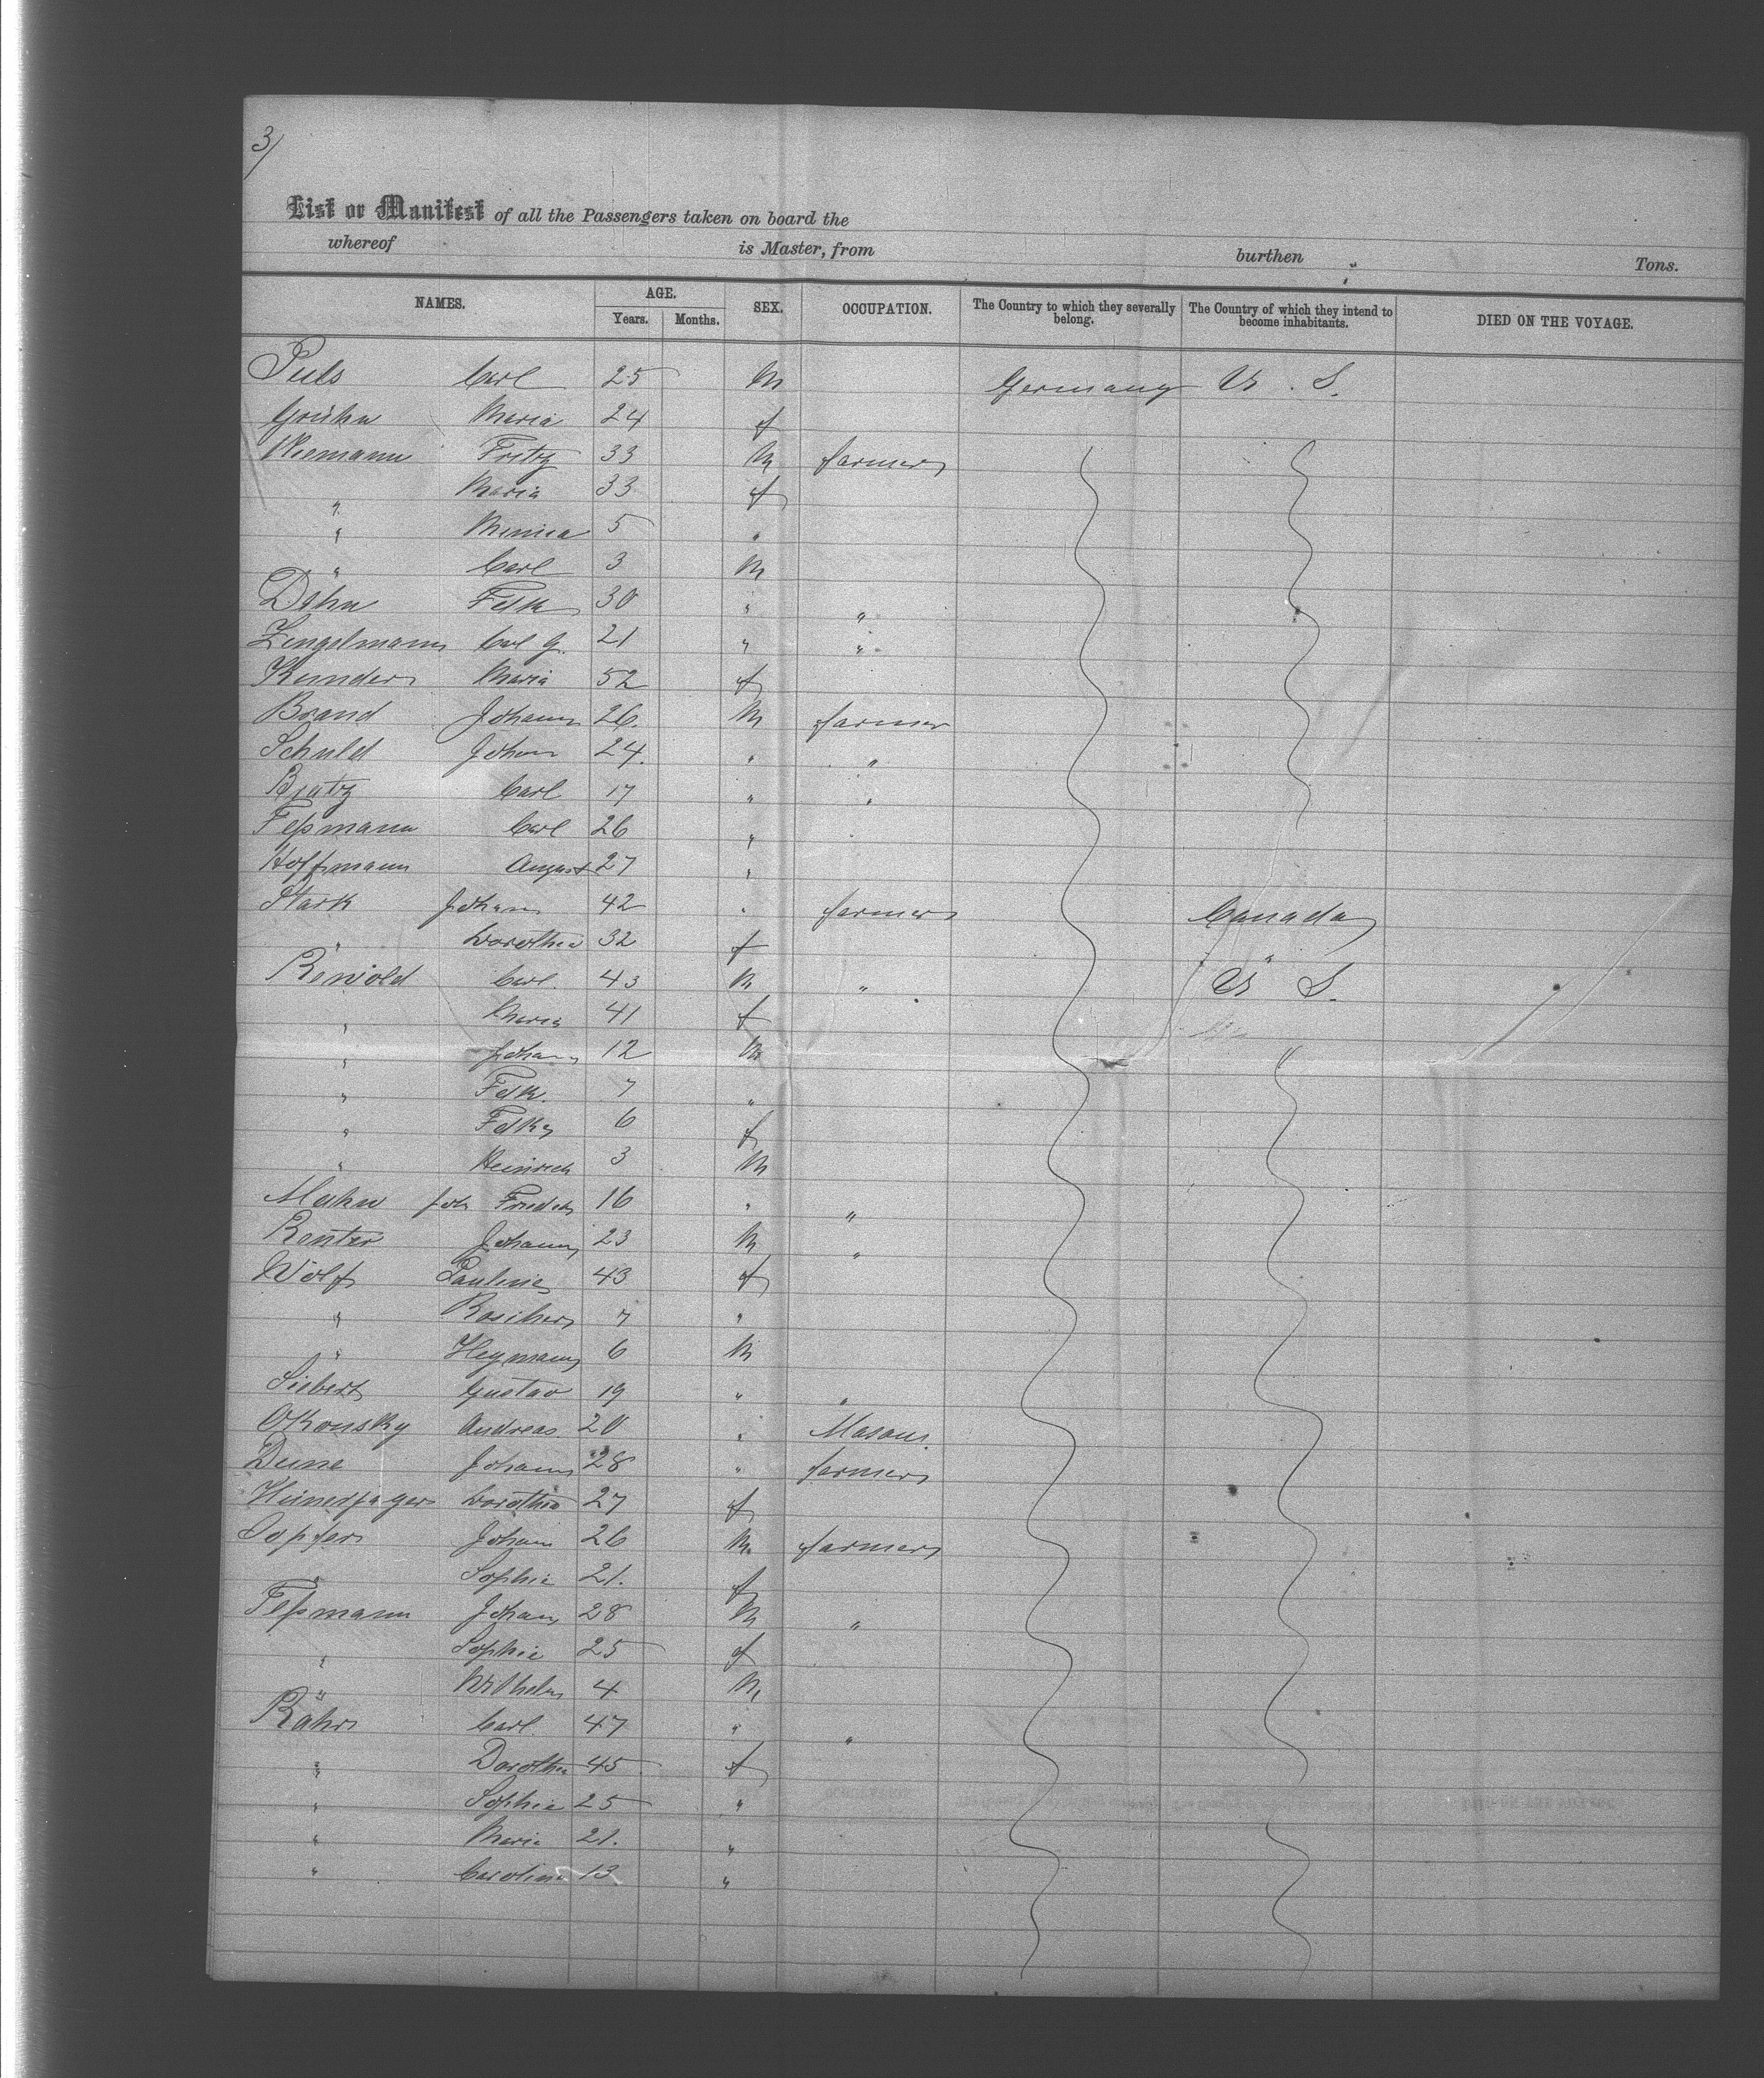 3/
List or Manifest of all the Passengers taken on board the
whereof is Master, from burthen Tons.
NAMES. AGE. Years. Months. SEX. OCCUPATION. The Country to which they severally belong. The Country of which they intend to become inhabitants. DIED ON THE VOYAGE.
Puls Carl 25 M Germany U. S.
Grühn Maria 24 f
Niemann Fritz 33 M farmer
" Maria 33 f
" Minna 5 "
" Carl 3 M
Dehn Fdk 30 " "
Zengelmann Carl G. 21 " "
Kunder Maria 52 f
Brand Johann 26. M farmer
Schuld Johann 24. " "
Carl 17 " "
Teßmann Carl 26 "
Hoffmann August 27 "
Stark Johann 42 " farmer Canada
" Dorothea 32 f "
Rewold Carl. 43 M " U S.
" Maria 41 f
" Johann 12 M
" Fdk. 7 "
" Fdke 6 f
" Heinrich 3 M
Mahn Joh Friedch 16 " "
Renter Johann 23 M "
Wolf Pauline 43 f
" 7 "
" Heymann 6 M
Siebert Gustav 19 " "
OKonsky Andreas. 20 " Mason.
Dune Johann 28 " farmer
Dorothea 27 f
Topfer Johann 26 M. farmer
" Sophie 21. f
Teßmann Johann 28 M "
" Sophie 25 f
" Wilhelm 4 M
Rähr Carl. 47 " "
" Dorothea 45 f
" Sophie 25 "
" Marie 21. "
" Carolina 13 "